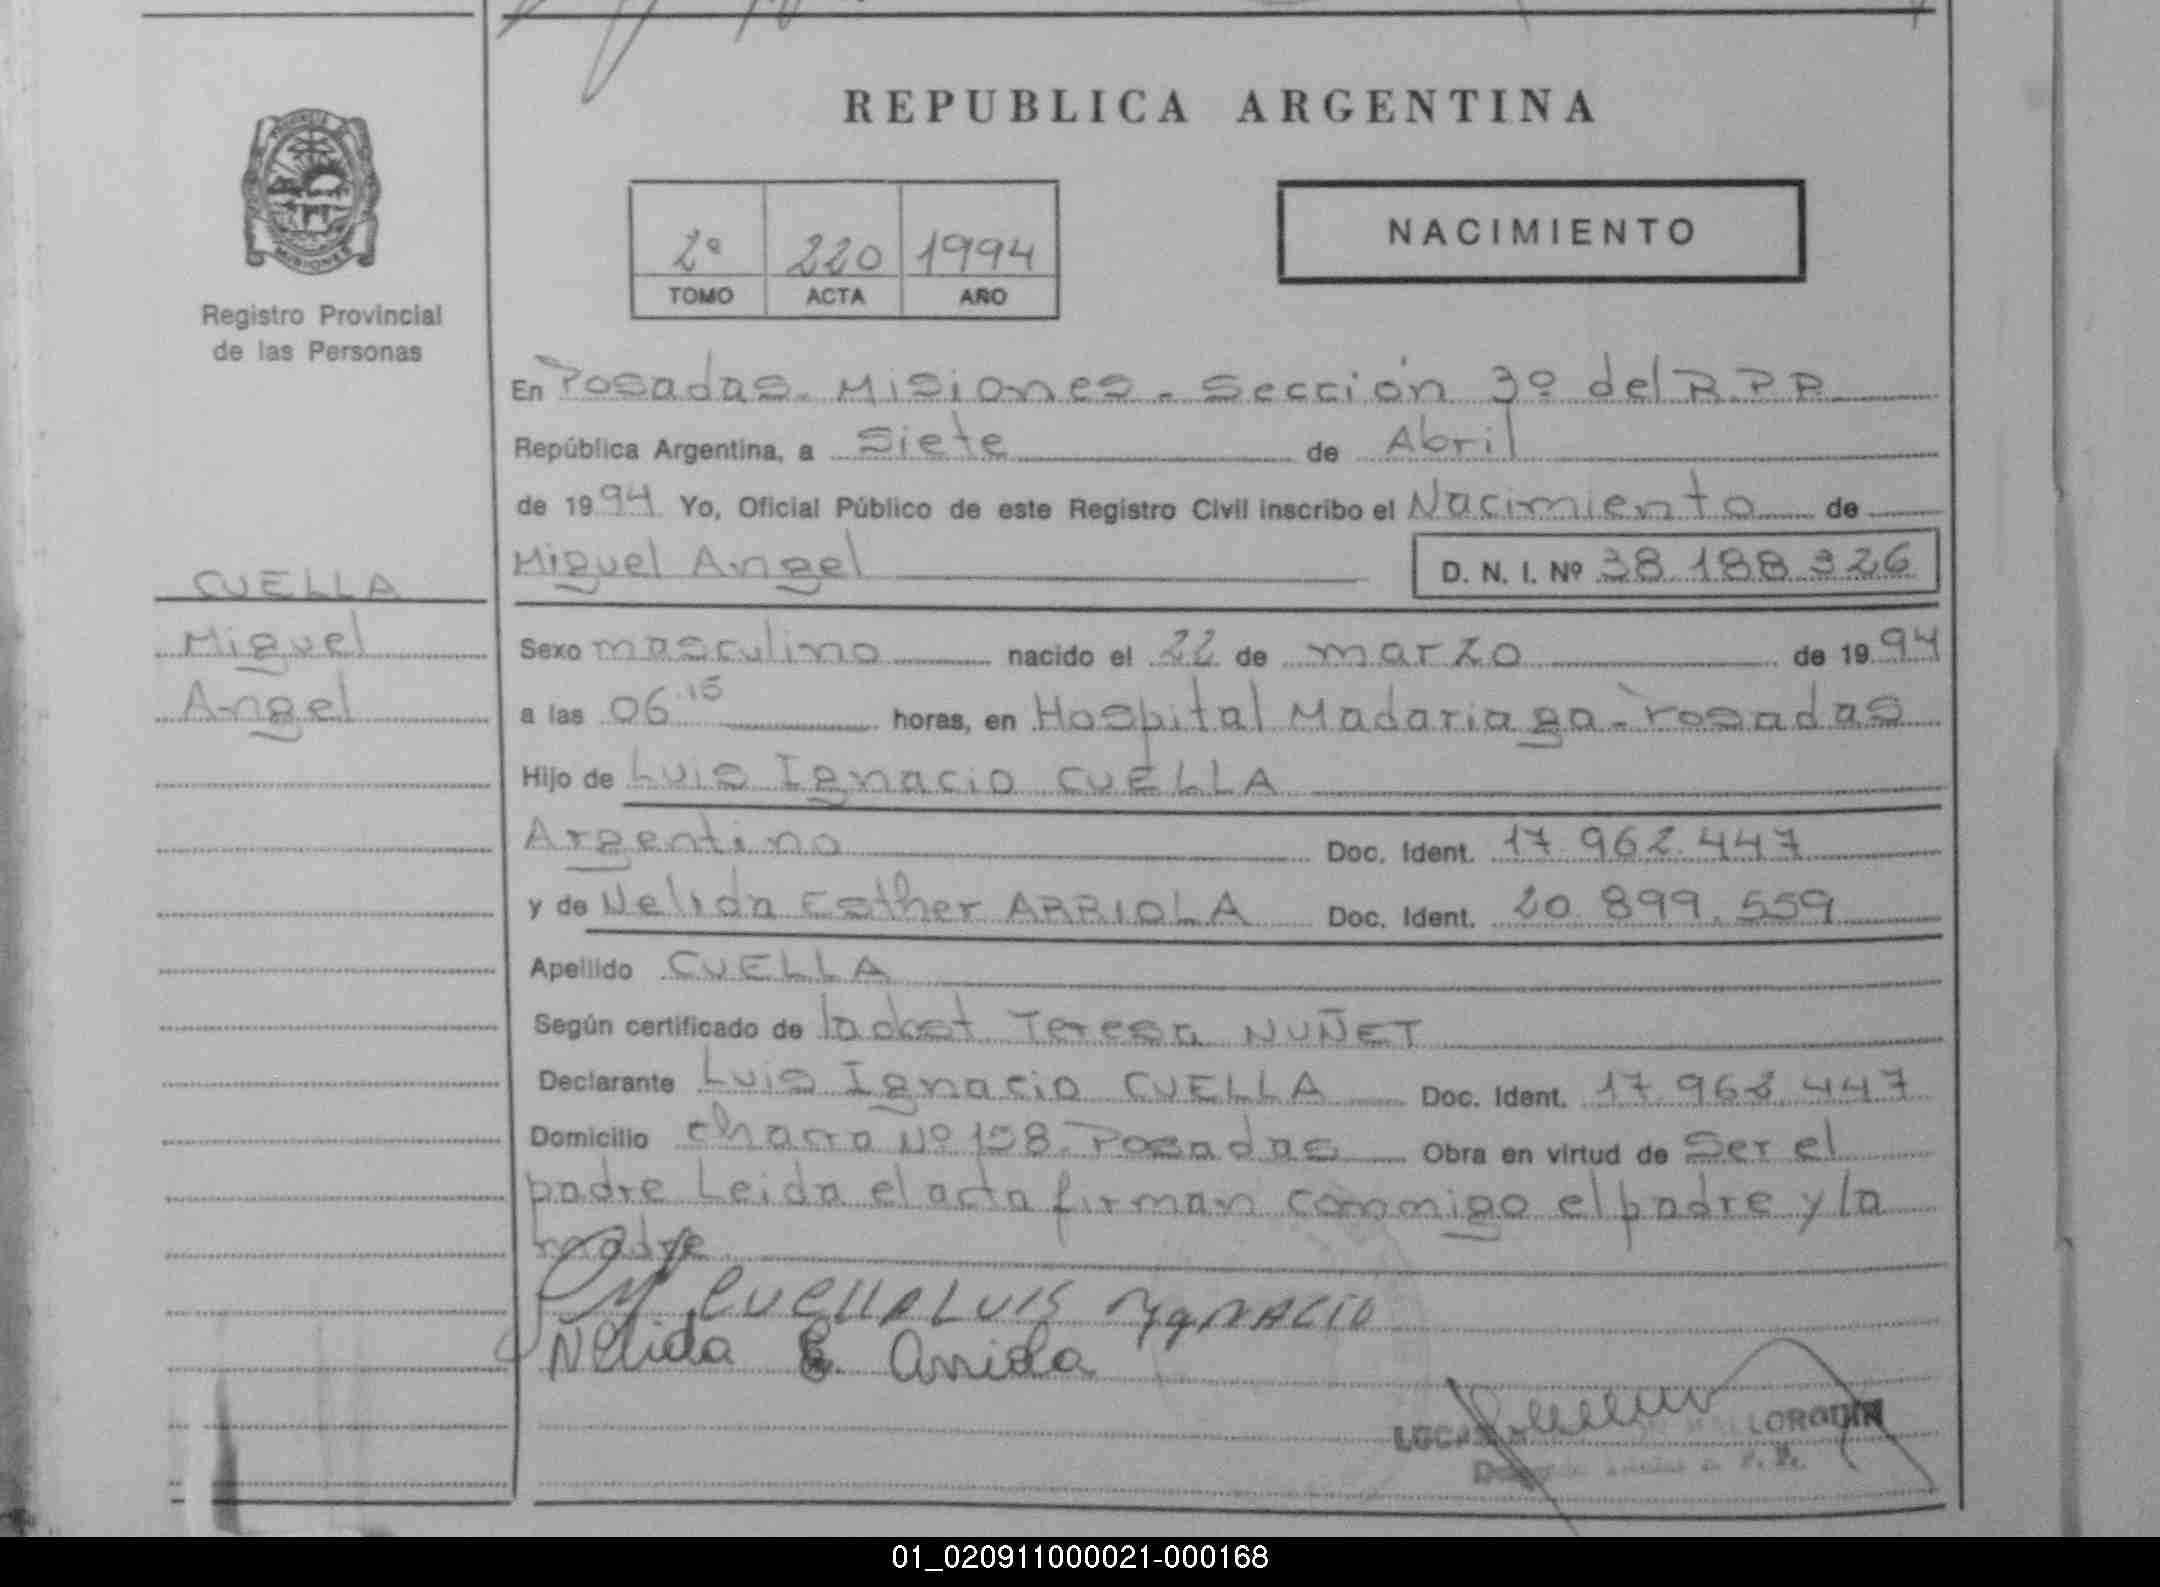 REPUBLICA ARGENTINA
PROVINCIA DE
MISIONES
Registro Provincial
de las Personas
2º 220 1994
TOMO ACTA AÑO
NACIMIENTO
En Posadas - Misiones - Sección 3º del R.P.P.
República Argentina, a Siete de Abril
de 1994 Yo, Oficial Público de este Registro Civil inscribo el Nacimiento de
Miguel Angel D. N. I. Nº 38.188.326
CUELLA
Miguel
Angel
Sexo masculino nacido el 22 de marzo de 1994
a las 06.15 horas, en Hospital Madariaga - Posadas
Hijo de Luis Ignacio CUELLA
Argentino Doc. Ident. 17.962.447
y de Nelida Esther ARRIOLA Doc. Ident. 20.899.559
Apellido CUELLA
Según certificado de Teresa NUÑET
Declarante Luis Ignacio CUELLA Doc. Ident. 17.962.447
Domicilio chacra Nº 158 - Posadas Obra en virtud de Ser el
padre Leida el acta firman conmigo el padre y la
madre.
CUELLA LUIS YgNACIO
Nélida E. Arriola
01_020911000021-000168